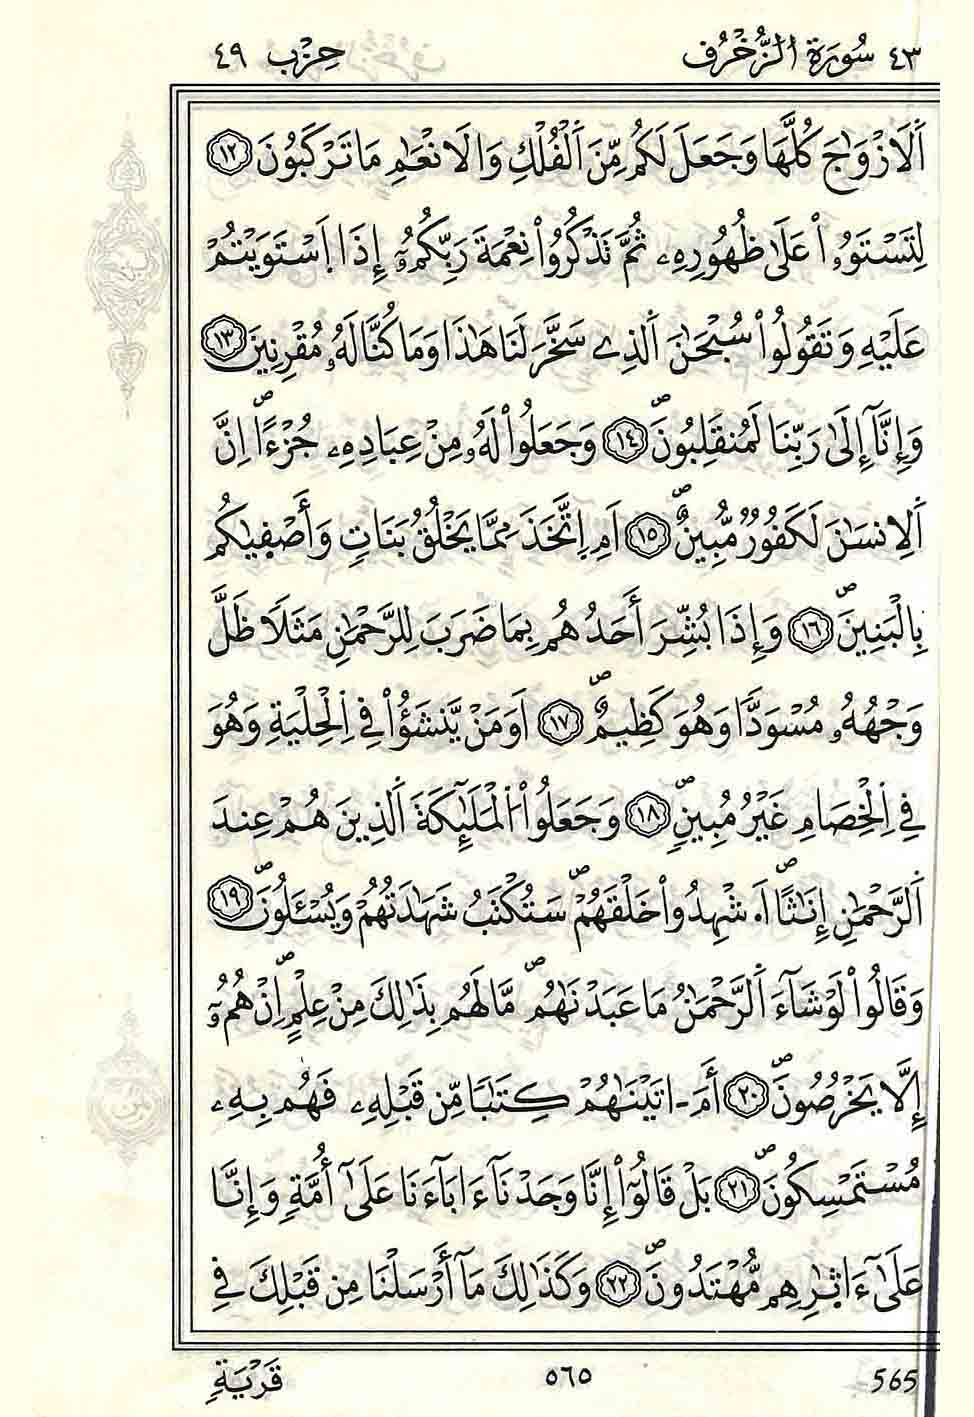 ٤٣ سُورَةُ الزُّخْرُفِ حِزْب ٤٩
اَ۬لَازْوَٰجَ كُلَّهَا وَجَعَلَ لَكُم مِّنَ اَ۬لْفُلْكِ وَالَانْعَٰمِ مَا تَرْكَبُونَ ١٢
لِتَسْتَوُۥاْ عَلَىٰ ظُهُورِهِۦ ثُمَّ تَذْكُرُواْ نِعْمَةَ رَبِّكُمُۥٓ إِذَا اَ۪سْتَوَيْتُمْ
عَلَيْهِ وَتَقُولُواْ سُبْحَٰنَ اَ۬لذِے سَخَّرَ لَنَا هَٰذَا وَمَا كُنَّا لَهُۥ مُقْرِنِينَ ١٣
وَإِنَّآ إِلَىٰ رَبِّنَا لَمُنقَلِبُونَۖ ١٤ وَجَعَلُواْ لَهُۥ مِنْ عِبَادِهِۦ جُزْءاًۖ اِنَّ
اَ۬لِانسَٰنَ لَكَفُورٌ مُّبِينٌۖ ١٥ اَمِ اِ۪تَّخَذَ مِمَّا يَخْلُقُ بَنَاتٍ وَأَصْفَىٰكُم
بِالْبَنِينَۖ ١٦ وَإِذَا بُشِّرَ أَحَدُهُم بِمَا ضَرَبَ لِلرَّحْمَٰنِ مَثَلاً ظَلَّ
وَجْهُهُۥ مُسْوَدّاً وَهُوَ كَظِيمٌۖ ١٧ اَوَمَنْ يَّنشَؤُاْ فِے اِ۬لْحِلْيَةِ وَهُوَ
فِے اِ۬لْخِصَامِ غَيْرُ مُبِينٍۖ ١٨ وَجَعَلُواْ اُ۬لْمَلَٰٓئِكَةَ اَ۬لذِينَ هُمْ عِندَ
اَ۬لرَّحْمَٰنِ إِنَٰثاًۖ اَ۟شْهِدُواْ خَلْقَهُمْۖ سَتُكْتَبُ شَهَٰدَتُهُمْ وَيُسْـَٔلُونَۖ ١٩
وَقَالُواْ لَوْ شَآءَ اَ۬لرَّحْمَٰنُ مَا عَبَدْنَٰهُمۖ مَّا لَهُم بِذَٰلِكَ مِنْ عِلْمٍۖ اِنْ هُمُۥٓ
إِلَّا يَخْرُصُونَۖ ٢٠ أَمَ اٰتَيْنَٰهُمْ كِتَٰباً مِّن قَبْلِهِۦ فَهُم بِهِۦ
مُسْتَمْسِكُونَۖ ٢١ بَلْ قَالُوٓاْ إِنَّا وَجَدْنَآ ءَابَآءَنَا عَلَىٰٓ أُمَّةٍ وَإِنَّا
عَلَىٰٓ ءَاثٰ۪رِهِم مُّهْتَدُونَۖ ٢٢ وَكَذَٰلِكَ مَآ أَرْسَلْنَا مِن قَبْلِكَ فِے
قَرْيَةٍ ٥٦٥ 565